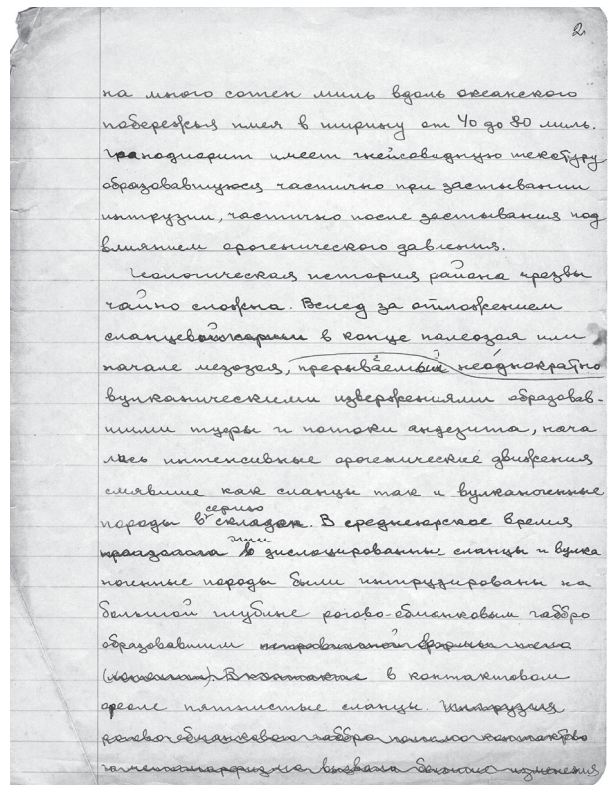 2
на много сотен миль вдоль океанского
побережья имея в ширину от 40 до 80 миль.
Гранодиорит имеет гнейсовидную текстуру
образовавшуюся частично при застывании
интрузии, частично после застывания под
влиянием орогенического давления.
Геологическая история района чрезвы
чайно сложна. Вслед за отложением
сланцев в конце палеозоя или
начале мезозоя, прерываемым неоднократно
вулканическими извержениями образовав-
шими туфы и потоки андезита, нача
лись интенсивные орогенические движения
смявшие как сланцы так и вулканогенные
серию
породы в складок. В среднеюрское время
эти
дислоцированные сланцы и вулка
ногенные породы были интрузированы на
большой глубине рогово-обманковым габбро
образовавшим
(). В контакте в контактовом
ореоле пятнистые сланцы. Интрузия
роговообманкового габбро контактово
го метаморфизма вызвала изменения